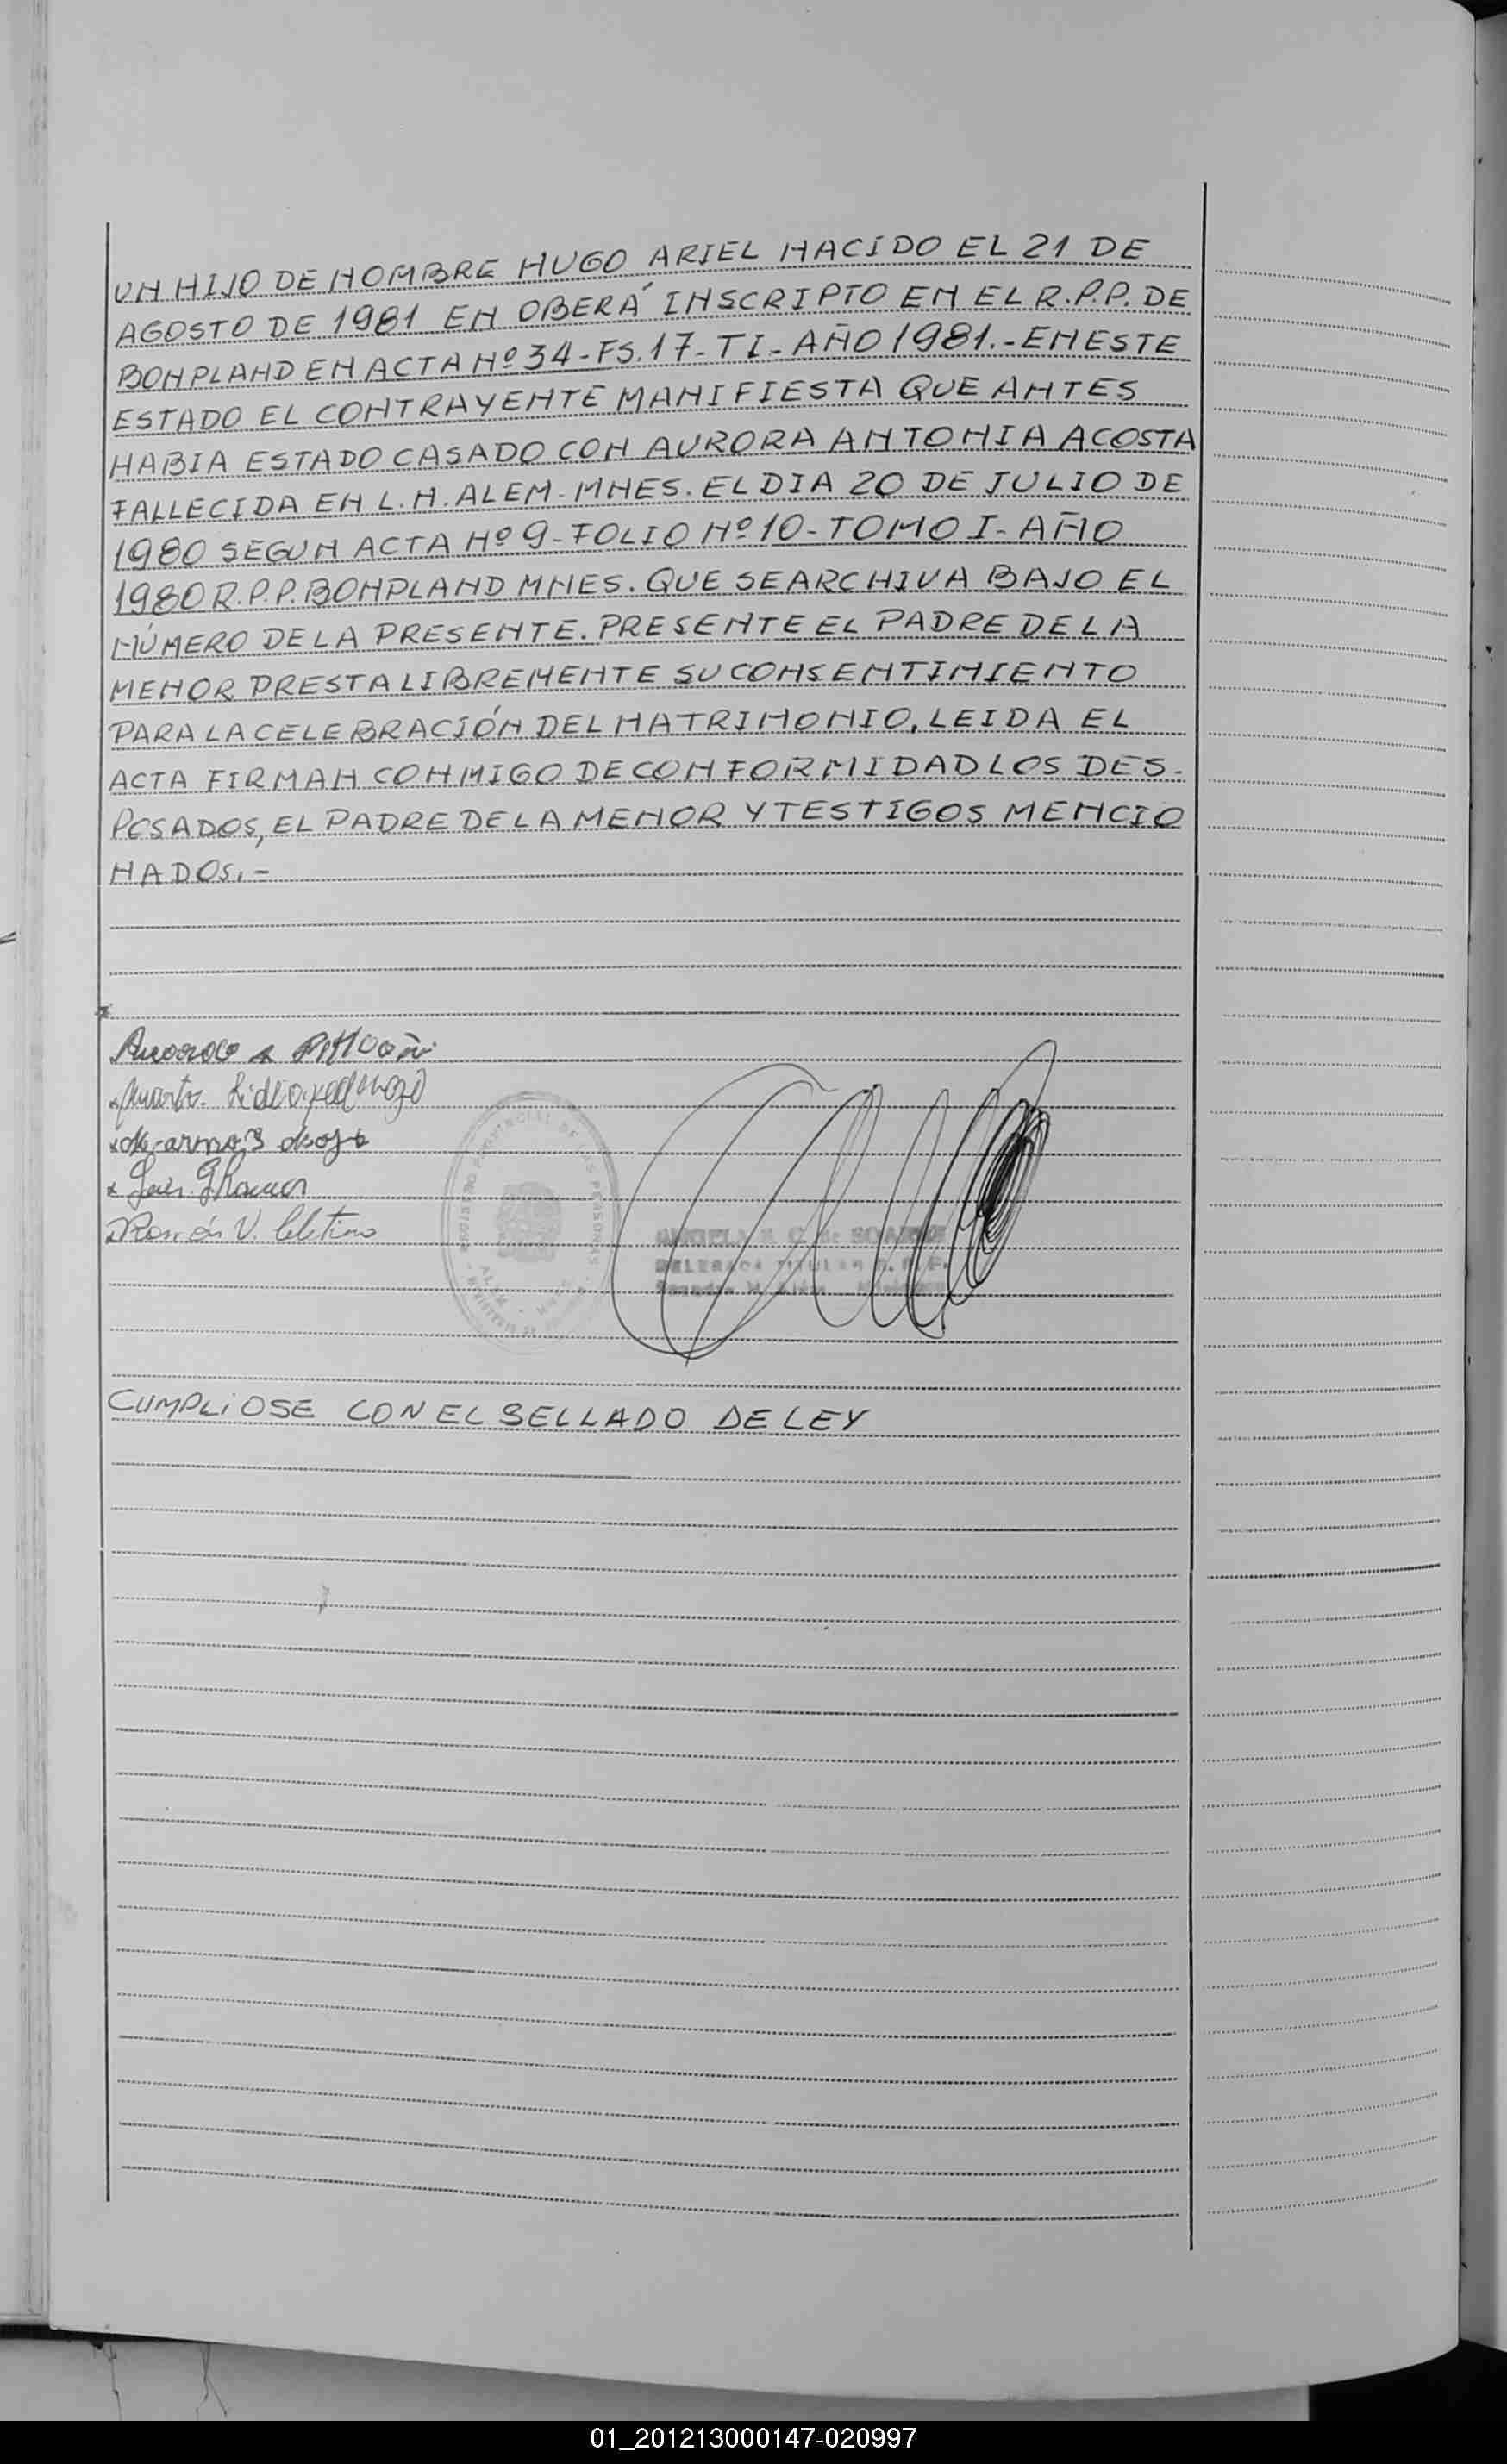 UN HIJO DE NOMBRE HUGO ARIEL NACIDO EL 21 DE
AGOSTO DE 1981 EN OBERÁ INSCRIPTO EN EL R.P.P. DE
BONPLAND EN ACTA Nº 34-FS.17-TI-AÑO 1981.-EN ESTE
ESTADO EL CONTRAYENTE MANIFIESTA QUE ANTES
HABIA ESTADO CASADO CON AURORA ANTONIA ACOSTA
FALLECIDA EN L.N. ALEM-MNES. EL DIA 20 DE JULIO DE
1980 SEGUN ACTA Nº 9-FOLIO Nº 10-TOMO I-AÑO
1980 R.P.P. BONPLAND MNES. QUE SE ARCHIVA BAJO EL
NÚMERO DE LA PRESENTE. PRESENTE EL PADRE DE LA
MENOR PRESTA LIBREMENTE SU CONSENTIMIENTO
PARA LA CELEBRACIÓN DEL MATRIMONIO, LEIDA EL
ACTA FIRMAN CONMIGO DE CONFORMIDAD LOS DES-
POSADOS, EL PADRE DE LA MENOR Y TESTIGOS MENCIO
NADOS.-
Ramón V.
REGISTRO PROVINCIAL DE LAS PERSONAS
C. de
DELEGADA TITULAR R.P.P.
CUMPLIOSE CON EL SELLADO DE LEY
01_201213000147-020997